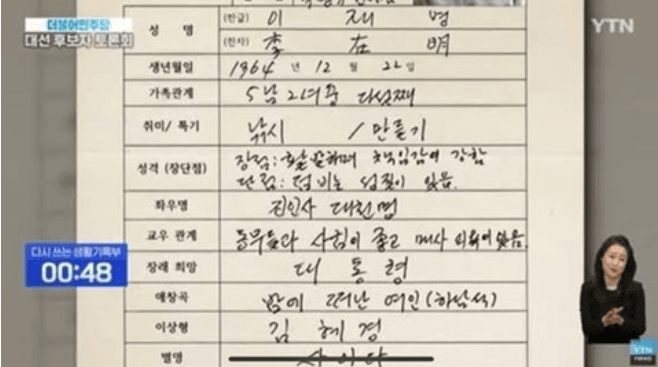 더불어민주당
대선 후보자 토론회
YTN
성 명
(한글) 이 재 명
(한자) 李 在 明
생년월일 1964 년 12 월 22 일
가족관계 5남 2녀중 다섯째
취미/ 특기 낚시 / 만들기
성격 (장단점) 장점: 활발하며 책임감이 강함
단점: 덤비는 성질이 있음.
좌우명 진인사 대천명
교우 관계 동무들과 사귐이 좋고 매사 의욕이 있음.
다시 쓰는 생활기록부
00:48
장래 희망 대 통 령
애창곡 밤에 떠난 여인 (하남석)
이상형 김 혜 경
별명 사이다
YTN
news